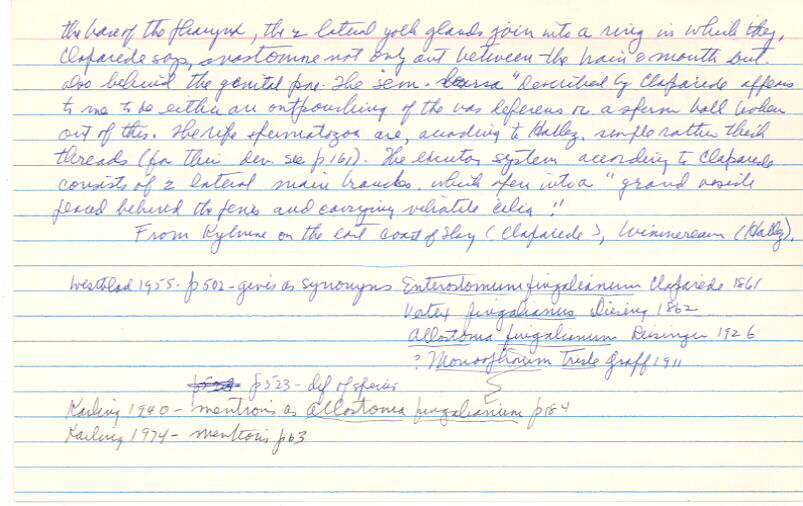 the base of the pharynx, the 2 lateral yolk glands join into a ring in which they,
Claparede says, anastomose not only out between the brain & mouth but
also behind the genital pore. The "sem. bursa" described by Claparede appears
to me to be either an outpouching of the vas deferens or a sperm ball broken
out of this. The ripe spermatozoa are, according to Hallez, simple rather thick
threads (for their dev. see p 161). The excretory system according to Claparede
consists of 2 lateral main branches which open into a "grand vesicle
placed behind the penis and carrying vibratile cilia."
From Kylrine on the east coast of Skye (Claparede), Wimmereaux (Hallez).
Westblad 1955 - p 502 - gives as synonyms Enterostomum fingalianum Claparede 1861
Vortex fingalianus Diesing 1862
Allostoma fingalianum Reisinger 1926
? Monoophorum triste Graff 1911
p 523 - def of species
Karling 1940 - mentions as Allostoma fingalianum p 184
Karling 1974 - mentions p 63